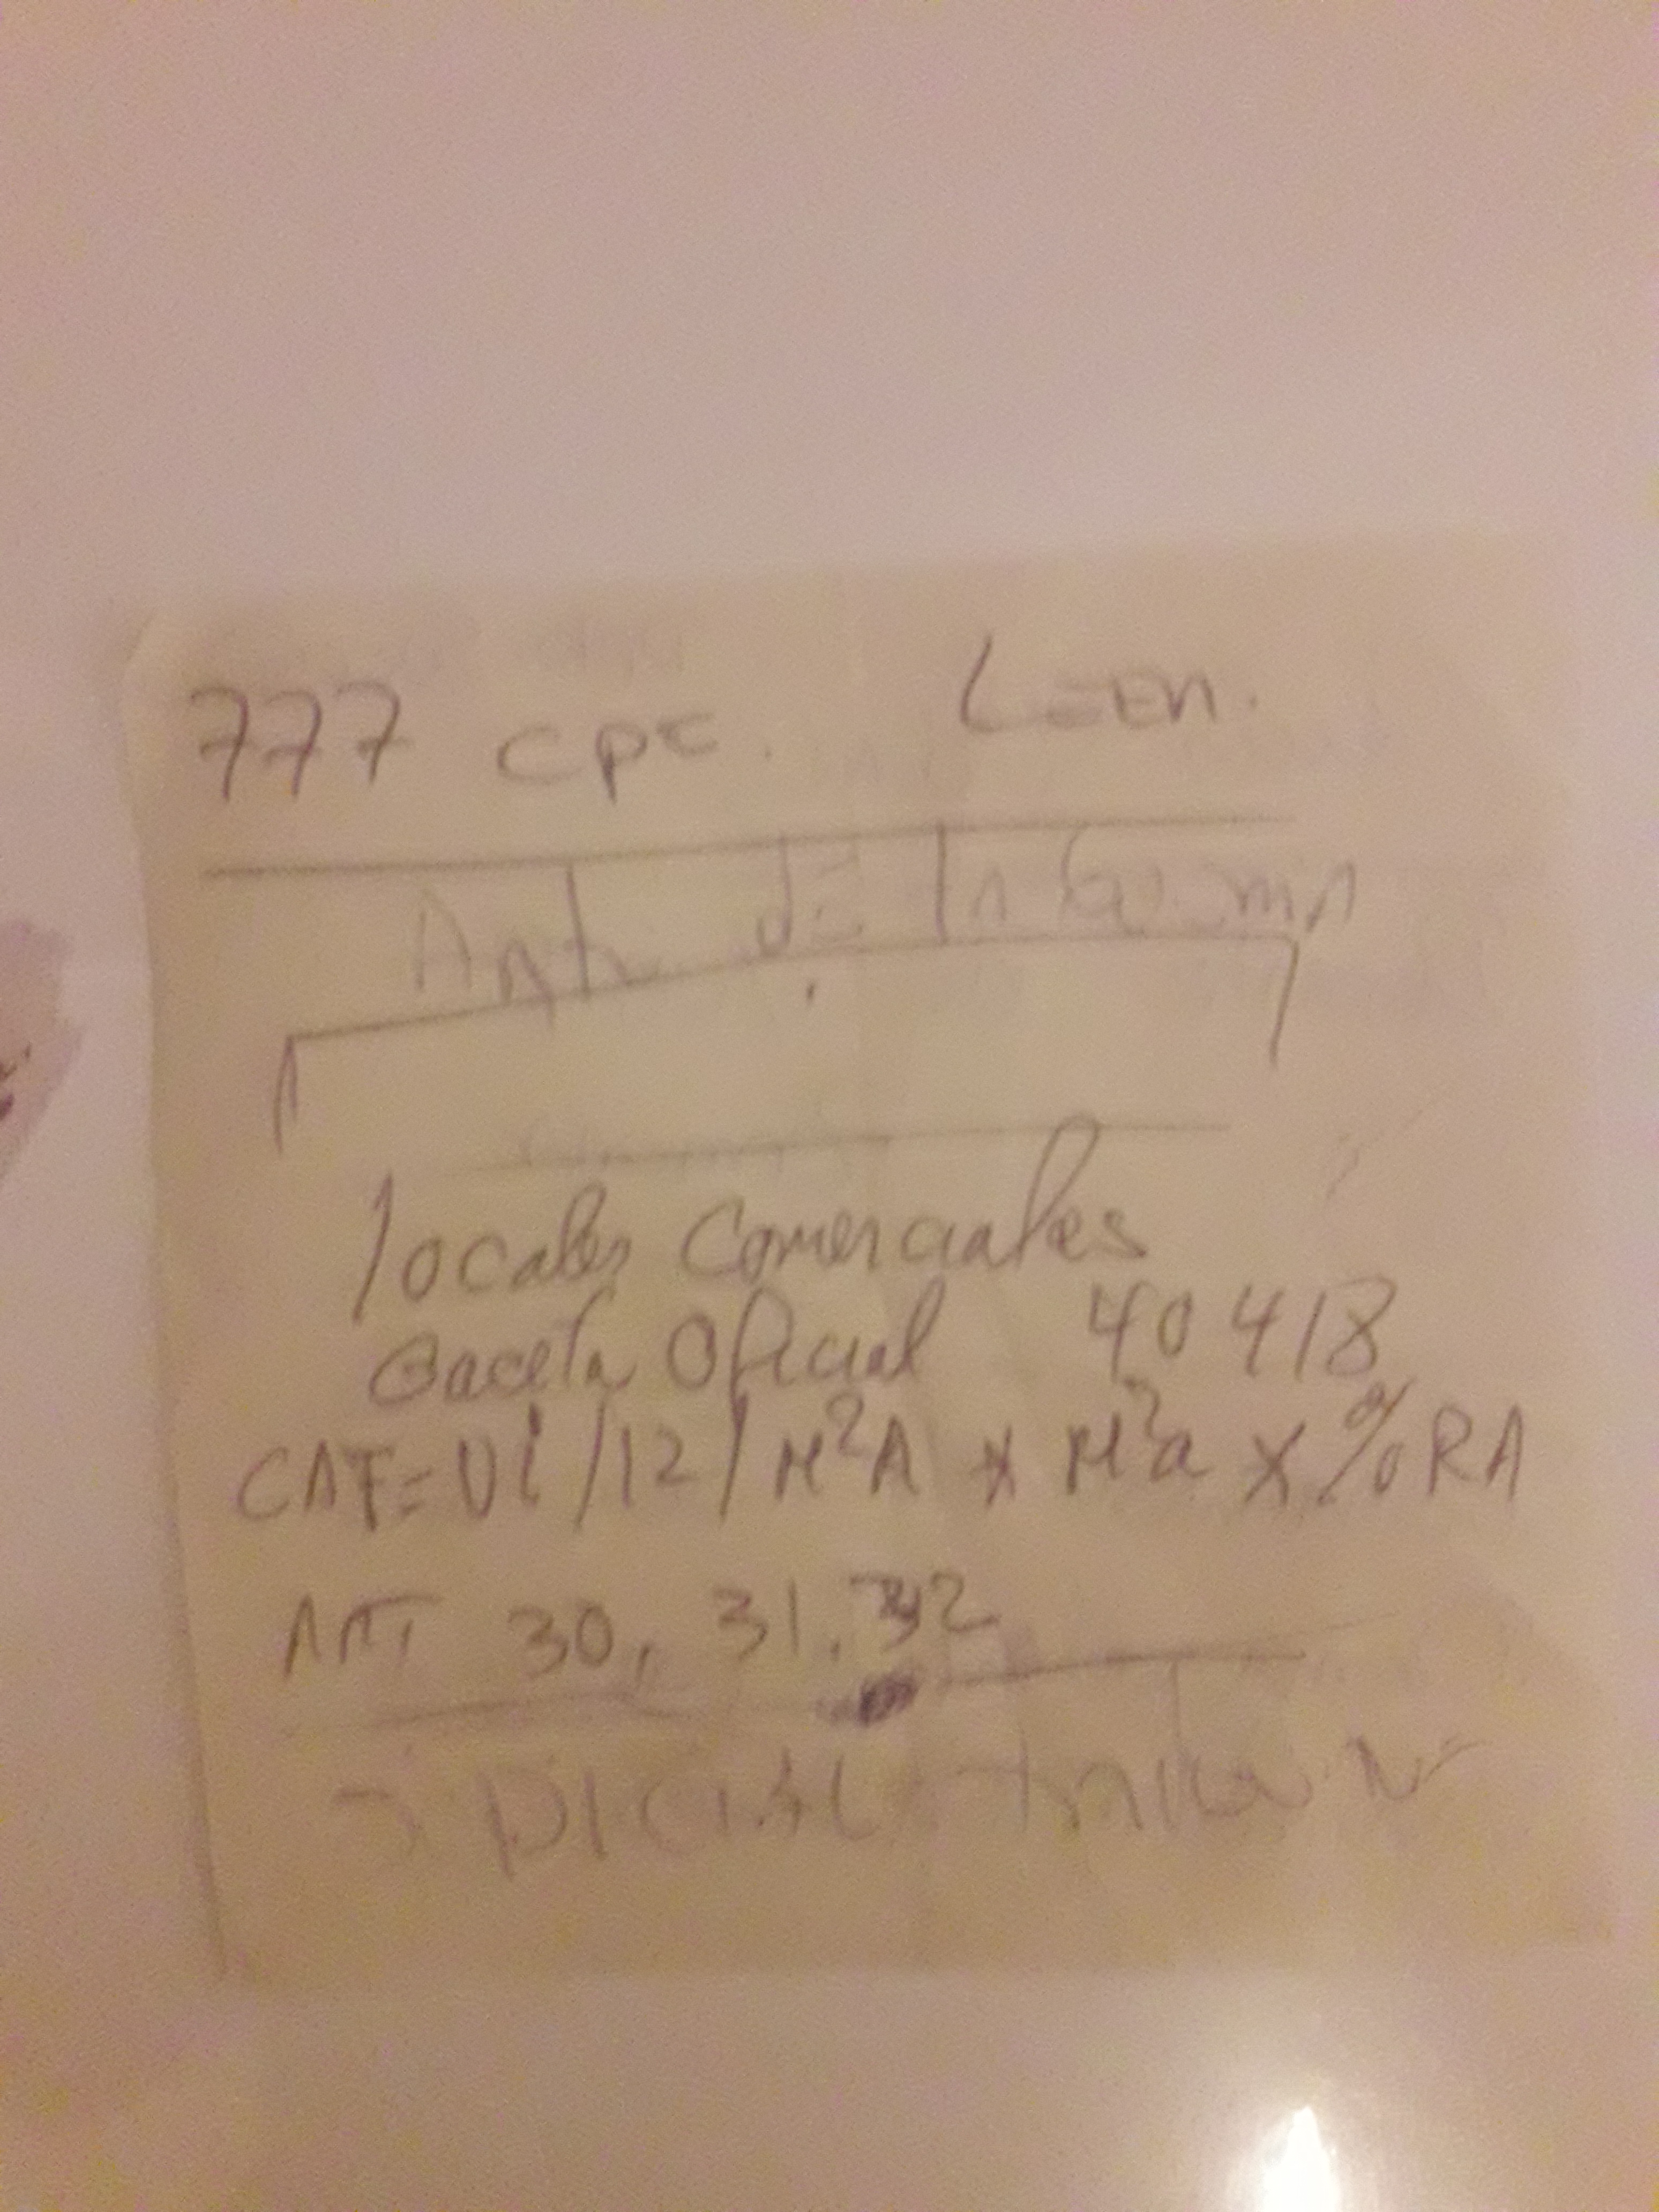 777 cpc. Leen.
Art. de la
locales Comerciales
Gaceta Oficial 40418
CAF=Vi/12/M²A x M²a x %RA
Art 30, 31, 32